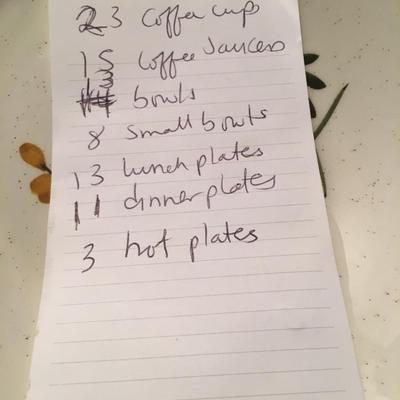 23 coffee cups
15 coffee saucers
13 bowls
8 small bowls
13 lunch plates
11 dinner plates
3 hot plates